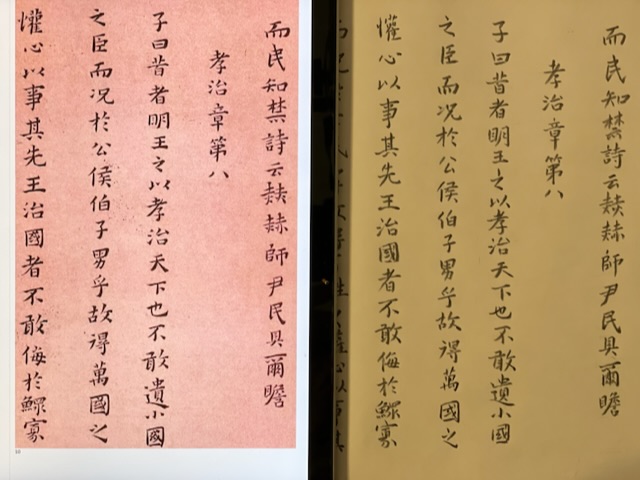 而民知禁詩云赫赫師尹民具爾瞻
孝治章第八
子曰昔者明王之以孝治天下也不敢遺小國
之臣而況於公侯伯子男乎故得萬國之
懽心以事其先王治國者不敢侮於鰥寡
而民知禁詩云赫赫師尹民具爾瞻
孝治章第八
子曰昔者明王之以孝治天下也不敢遺小國
之臣而況於公侯伯子男乎故得萬國之
懽心以事其先王治國者不敢侮於鰥寡